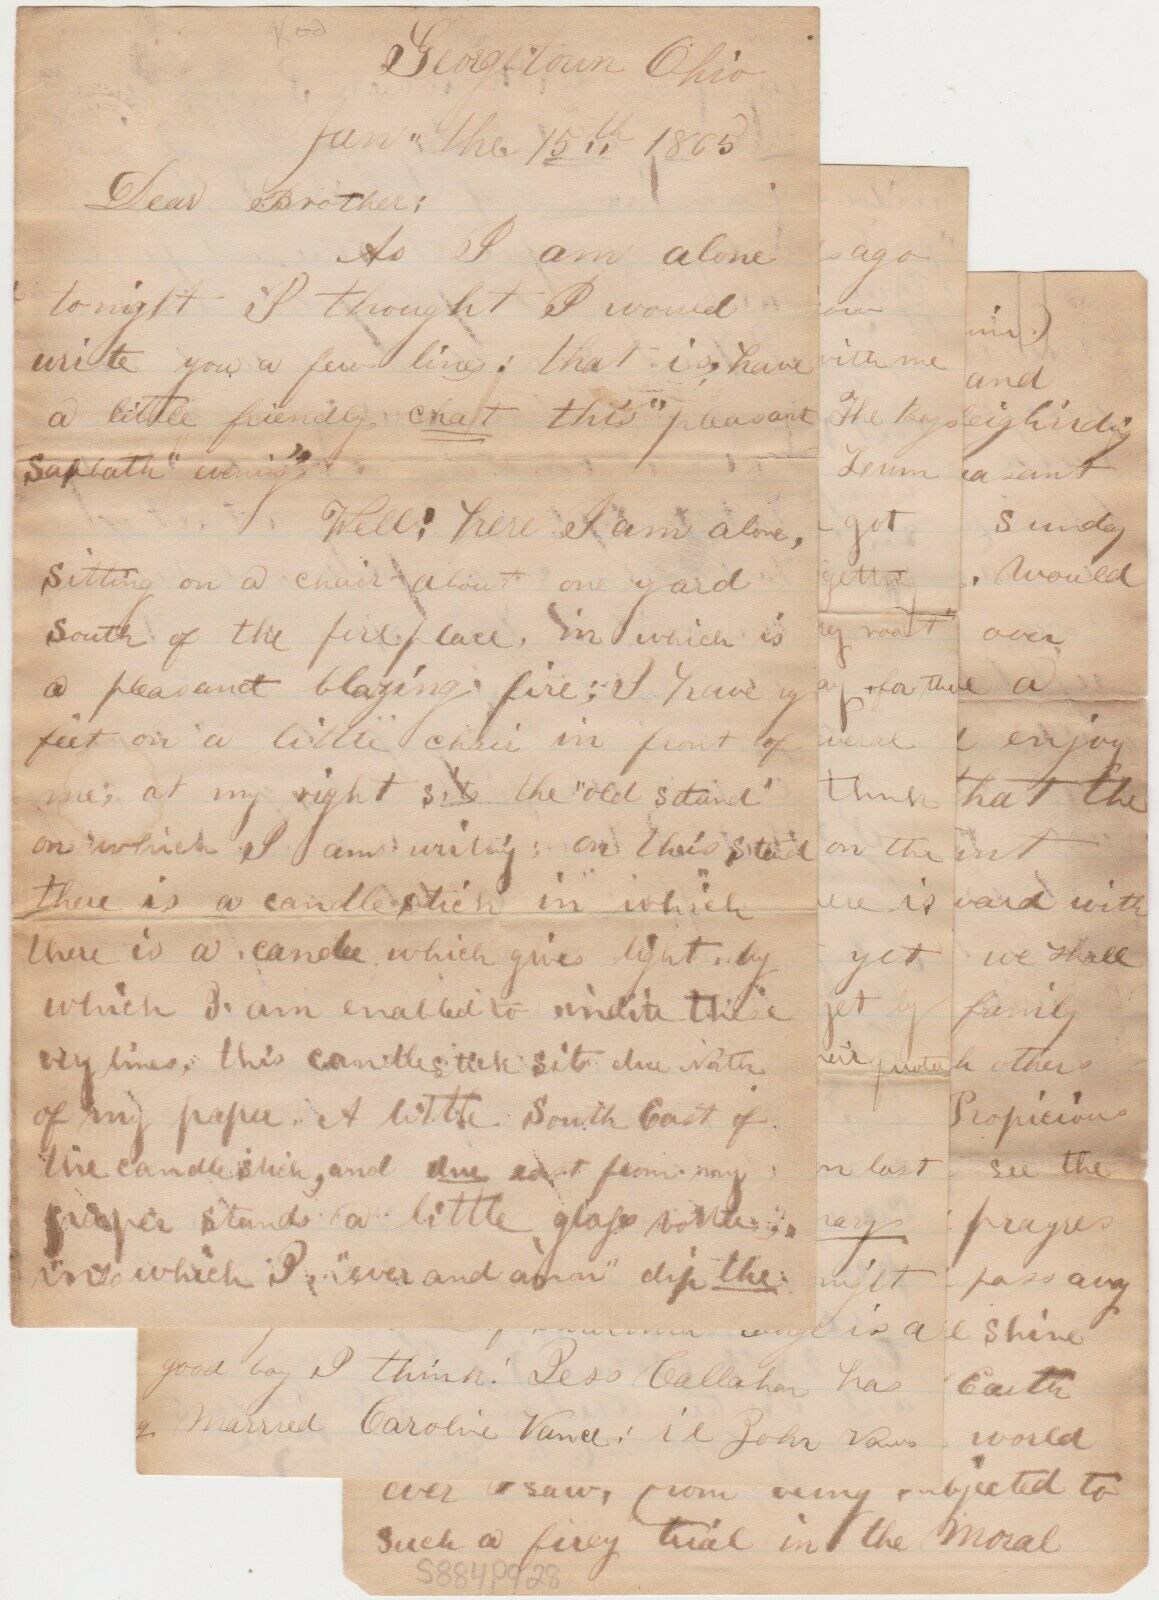 Georgetown Ohio
Jan" the 15th 1865
Dear Brother:
As I am alone
tonight I thought I would
write you a few lines: that is, have
a little friendly chat this "pleasant
Sabbath" evening".
Well! here I am alone,
sitting on a chair about one yard
South of the fire place, in which is
a pleasant blazing fire; I have my
feet on a little chair in front of
me; at my right sits the "old stand"
on which I am writing; on this stand
there is a candle stick in "which"
there is a candle which gives light, by
which I am enabled to indite these
very lines, this candle stick sits due North
of my paper. A little South East of
the candle stick, and due east from my
paper stands a little glass bottle;
into which I, "ever and anon" dip the
s ago
with me
The Boys
got
getting
ing roast"
for the
several
think
on the
ere is
yet
get by
their
on last
night
is a
good boy I think! Bess Callahan has
Married Caroline Vance! il John
and
sleighriding
easant
Sunday
. Would
over
e a
enjoy
that the
vard with
we shall
family
h others
Propicious
see the
prayres
pass away
all shine
Earth
world
ever saw, from being subjected to
such a firey trial in the Moral
S884P928